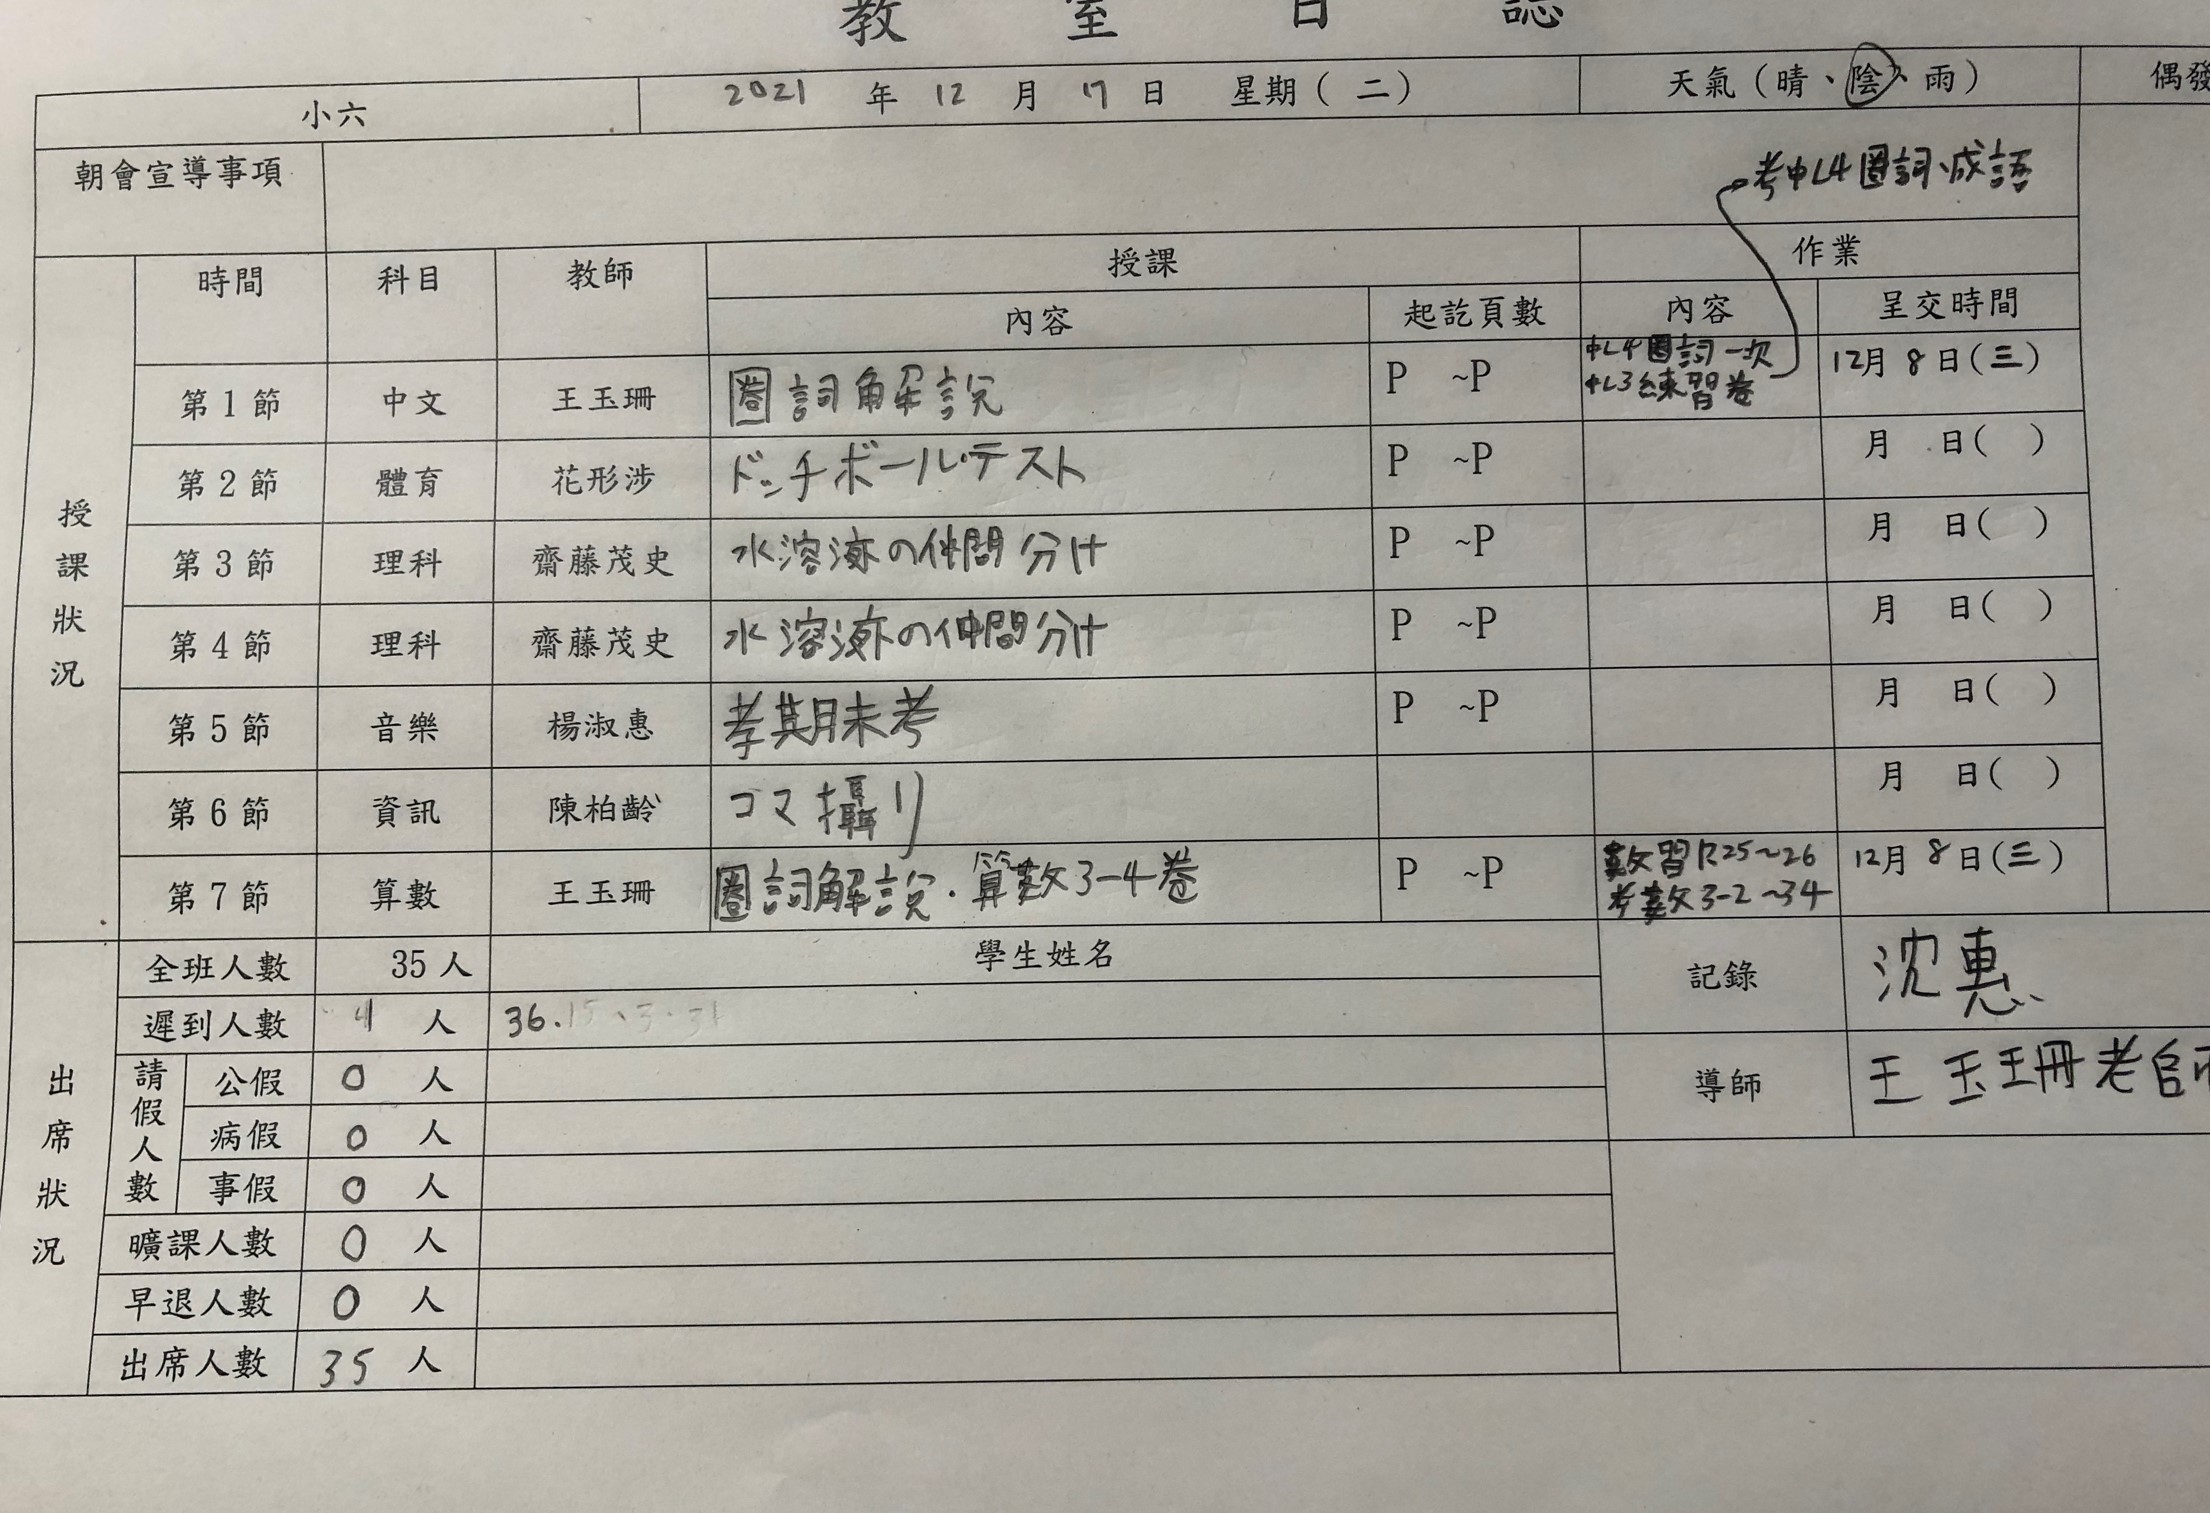 教 室 日 誌
小六 2021 年 12 月 17 日 星期（二） 天氣（晴、陰、雨） 偶發
朝會宣導事項 考中L4圈詞、成語
授課狀況 時間 科目 教師 授課 作業
內容 起訖頁數 內容 呈交時間
第1節 中文 王玉珊 圈詞解說 P ~P 中L4圈詞一次 12月8日(三)
中L3練習卷
第2節 體育 花形涉 ドッチボールテスト P ~P 月 日( )
第3節 理科 齋藤茂史 水溶液の仲間分け P ~P 月 日( )
第4節 理科 齋藤茂史 水溶液の仲間分け P ~P 月 日( )
第5節 音樂 楊淑惠 考期末考 P ~P 月 日( )
第6節 資訊 陳柏齡 コマ撮り 月 日( )
第7節 算數 王玉珊 圈詞解說．算數3-4卷 P ~P 數習P.25~26 12月8日(三)
考數3-2~34
出席狀況 全班人數 35人 學生姓名 記錄 沈惠
遲到人數 4 人 36.15、3.31
請假人數 公假 0 人 導師 王玉珊老師
病假 0 人
事假 0 人
曠課人數 0 人
早退人數 0 人
出席人數 35 人